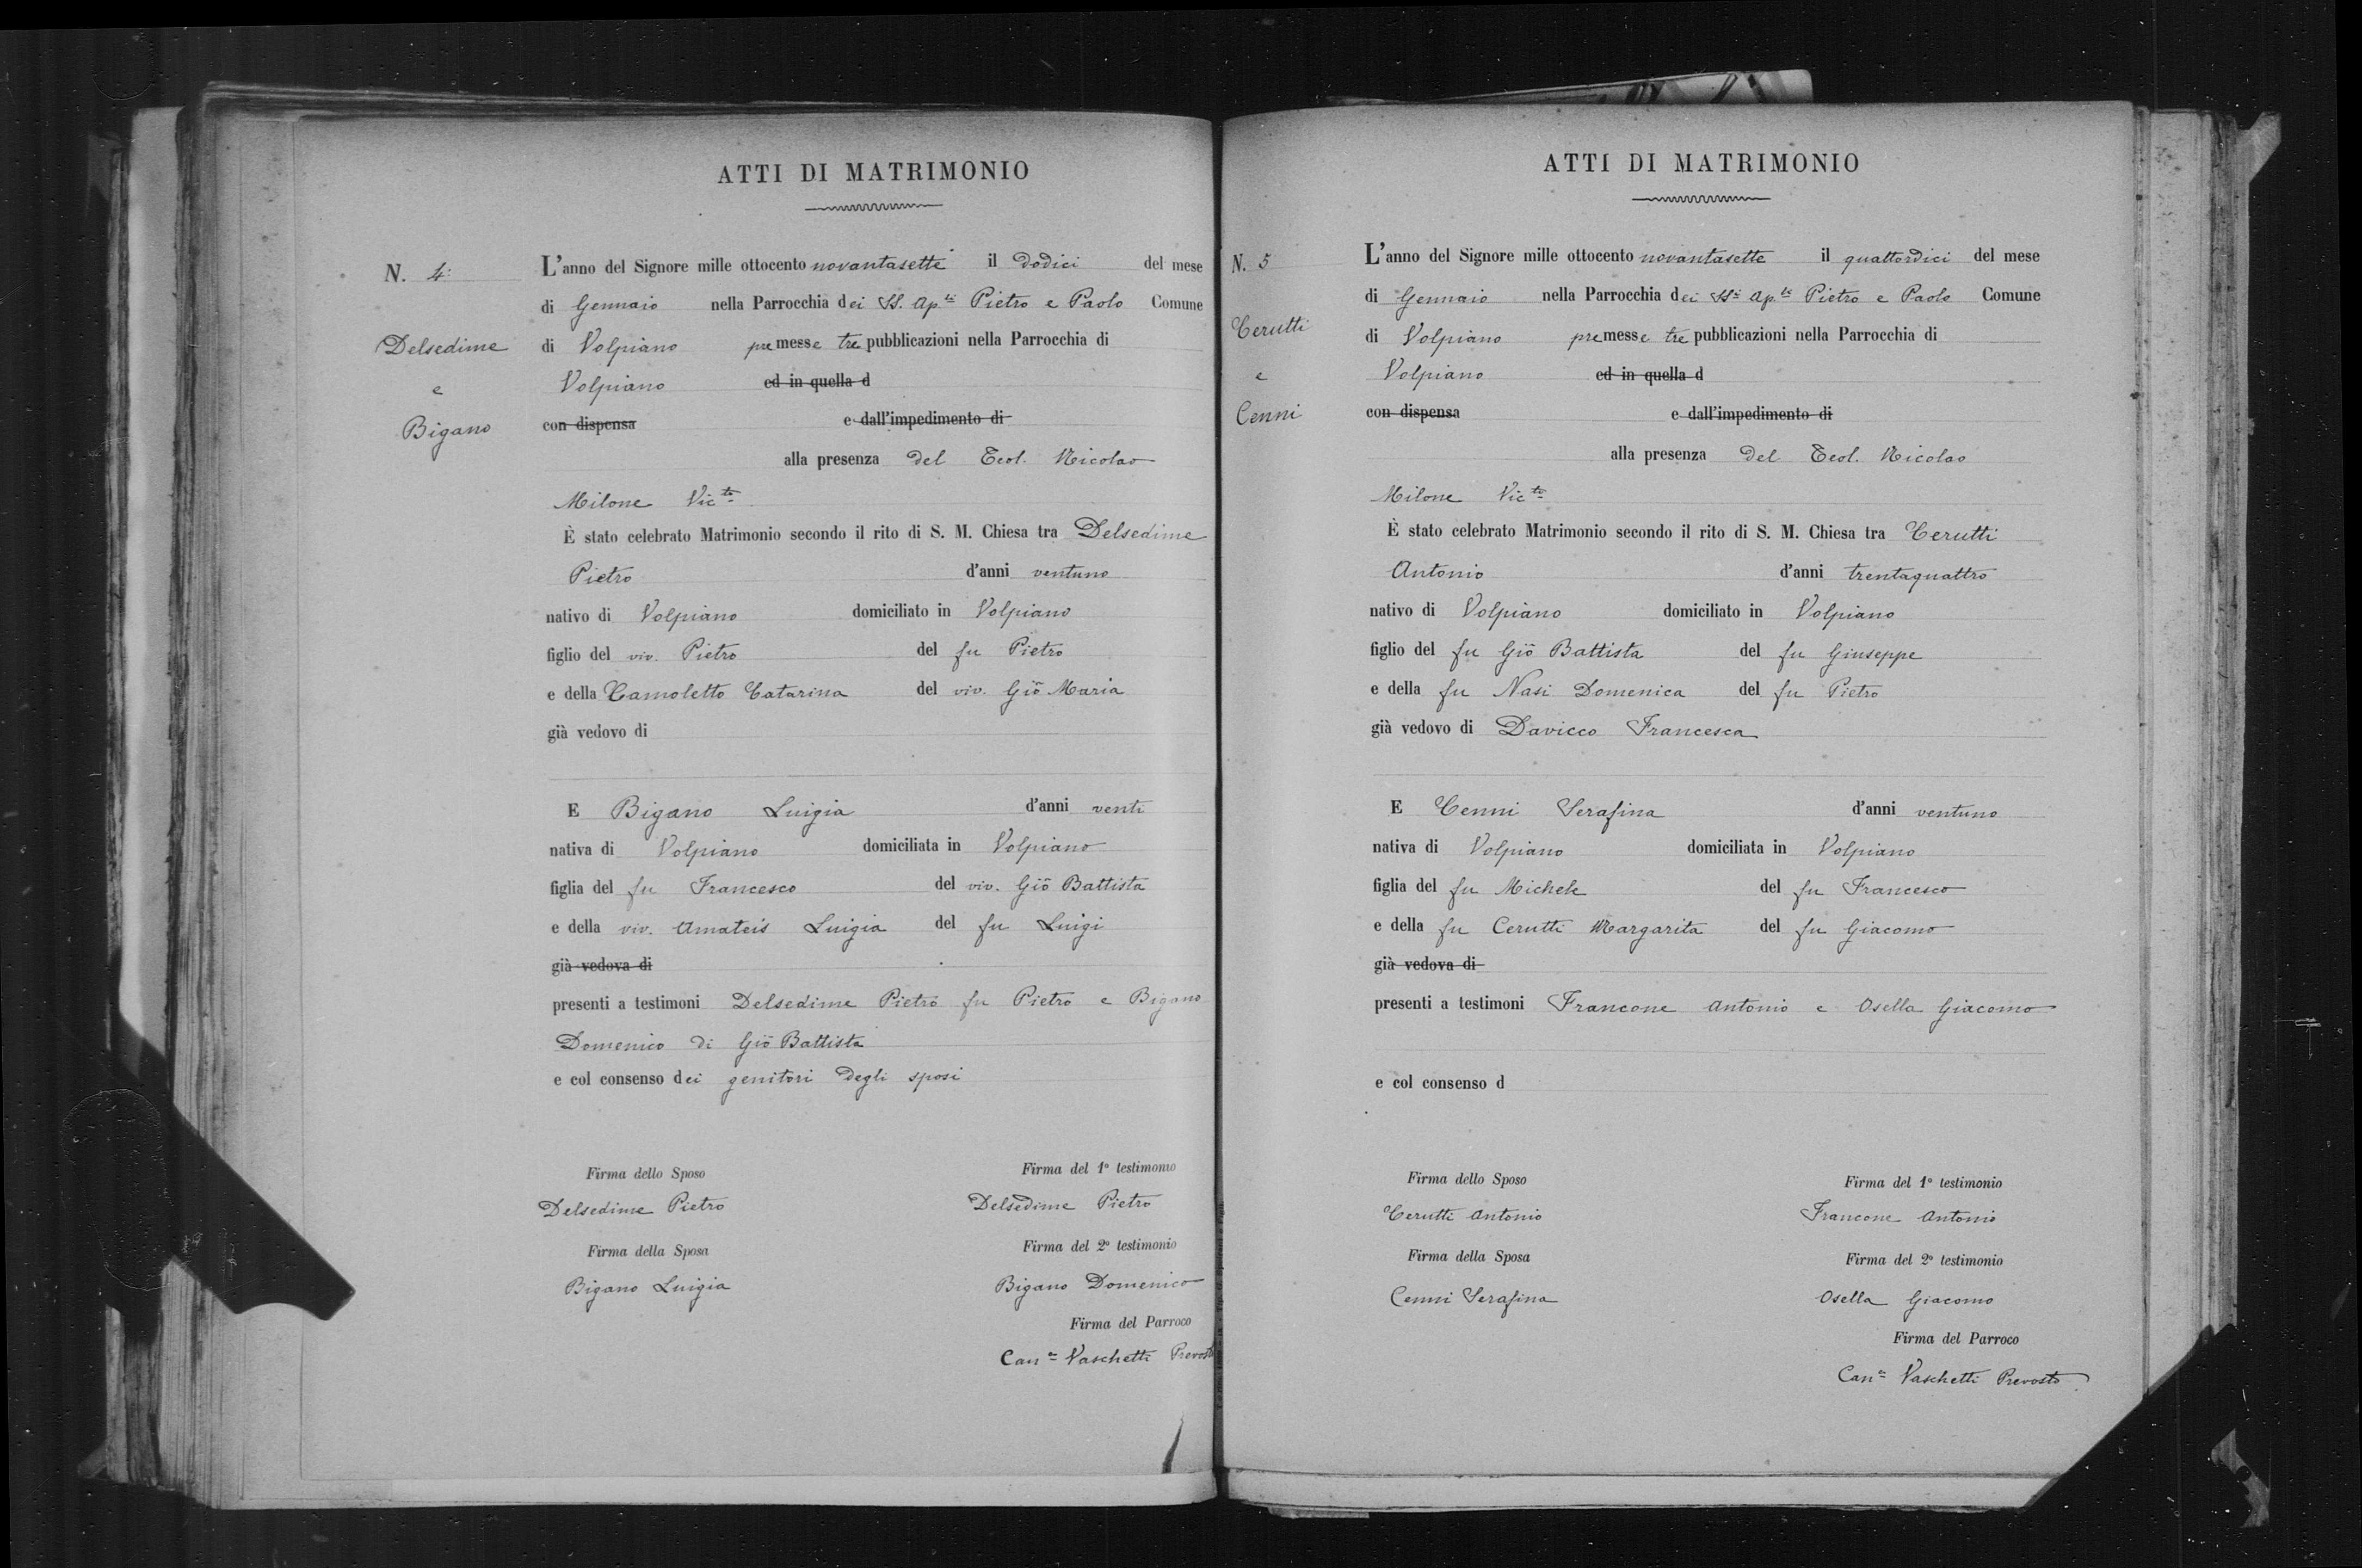 ATTI DI MATRIMONIO
N. 4.
Delsedime
e
Bigano
L'anno del Signore mille ottocento novantasette il dodici del mese
di Gennaio nella Parrocchia dei SS. Ap.li Pietro e Paolo Comune
di Volpiano premesse tre pubblicazioni nella Parrocchia di
Volpiano ed in quella d
con dispensa e dall'impedimento di
alla presenza del Teol. Nicolao
Milone Vic.to
È stato celebrato Matrimonio secondo il rito di S. M. Chiesa tra Delsedime
Pietro d'anni ventuno
nativo di Volpiano domiciliato in Volpiano
figlio del viv. Pietro del fu Pietro
e della Camoletto Catarina del viv. Giõ Maria
già vedovo di
E Bigano Luigia d'anni venti
nativa di Volpiano domiciliata in Volpiano
figlia del fu Francesco del viv. Giõ Battista
e della viv. Amateis Luigia del fu Luigi
già vedova di
presenti a testimoni Delsedime Pietro fu Pietro e Bigano
Domenico di Giõ Battista
e col consenso dei genitori degli sposi
Firma dello Sposo Firma del 1º testimonio
Delsedime Pietro Delsedime Pietro
Firma della Sposa Firma del 2º testimonio
Bigano Luigia Bigano Domenico
Firma del Parroco
Can.co Vaschetti Prevosto
ATTI DI MATRIMONIO
N. 5
Cerutti
e
Cenni
L'anno del Signore mille ottocento novantasette il quattordici del mese
di Gennaio nella Parrocchia dei SS.i Ap.li Pietro e Paolo Comune
di Volpiano premesse tre pubblicazioni nella Parrocchia di
Volpiano ed in quella d
con dispensa e dall'impedimento di
alla presenza del Teol. Nicolao
Milone Vic.to
È stato celebrato Matrimonio secondo il rito di S. M. Chiesa tra Cerutti
Antonio d'anni trentaquattro
nativo di Volpiano domiciliato in Volpiano
figlio del fu Giõ Battista del fu Giuseppe
e della fu Nasi Domenica del fu Pietro
già vedovo di Davicco Francesca
E Cenni Serafina d'anni ventuno
nativa di Volpiano domiciliata in Volpiano
figlia del fu Michele del fu Francesco
e della fu Cerutti Margarita del fu Giacomo
già vedova di
presenti a testimoni Francone Antonio e Osella Giacomo
e col consenso d
Firma dello Sposo Firma del 1º testimonio
Cerutti Antonio Francone Antonio
Firma della Sposa Firma del 2º testimonio
Cenni Serafina Osella Giacomo
Firma del Parroco
Can.co Vaschetti Prevosto